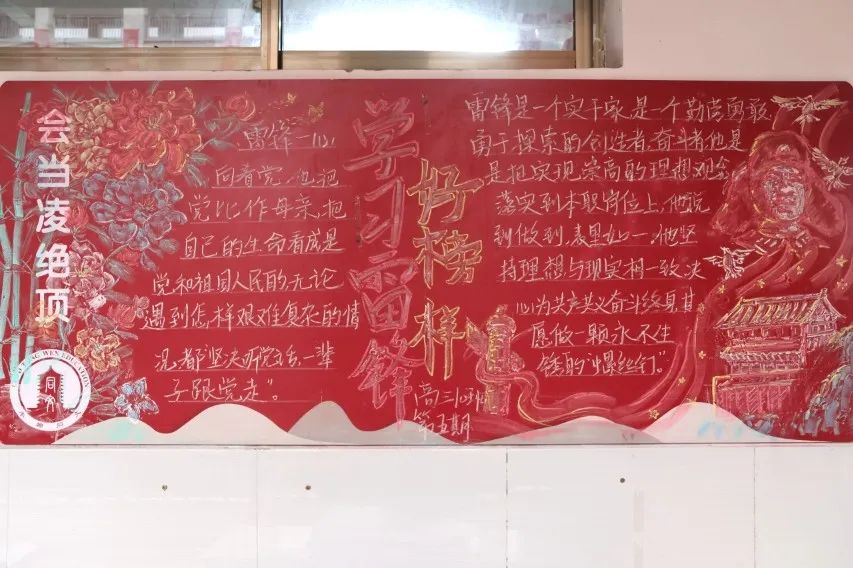 会当凌绝顶
雷锋一心
向着党,他把
党比作母亲,把
自己的生命看成是
党和祖国人民的,无论
遇到怎样艰难复杂的情
况,都坚决听党话,一辈
子跟党走"。
学习雷锋
好榜样
高三
第五期
雷锋是一个实干家,是一个勤奋勇敢
勇于探索的创造者,奋斗者,他是
是把实现崇高的理想
落实到本职岗位上,他说
到做到,表里如一,他坚
持理想与现实相一致,决
心为共产主义奋斗终身,甘
愿做一颗永不生
锈的"螺丝钉"。
WEN EDUCATION
同文